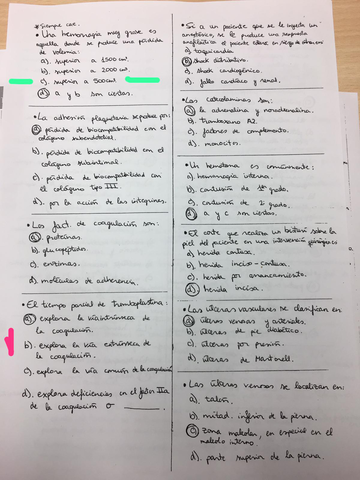 *Siempre cae.
• Una hemorragia muy grave es
aquella donde se produce una pérdida
de volemia:
a). superior a 1500 cm³.
b). superior a 2000 cm³.
c). superior a 500 cm³
d). a y b son ciertas.
• La adhesión plaquetaria se produce por:
a). pérdida de biocompatibilidad con el
colágeno subendotelial.
b). pérdida de biocompatibilidad con el
colágeno subintimal.
c). pérdida de biocompatibilidad con
el colágeno tipo III.
d). por la acción de las integrinas.
• Los fact. de coagulación son:
a). proteínas.
b). glucopéptidos.
c). enzimas.
d). moléculas de adherencia.
• El tiempo parcial de tromboplastina:
a). explora la vía intrínseca de
la coagulación.
b). explora la vía extrínseca de
la coagulación.
c). explora la vía común de la coagulación
d). explora deficiencias en el factor IIa
de la coagulación o
• Si a un paciente que se le inyecta un
anestésico, se le produce una respuesta
anafiláctica el paciente entrará en riesgo de
a). taquicardia
b). shock distributivo.
c). shock cardiogénico.
d). fallo cardíaco y renal.
• Las catecolaminas son:
a). la adrenalina y noradrenalina.
b). tromboxano A2.
c). factores de complemento.
d). monocitos.
• Un hematoma es comúnmente:
a). hemorragia interna.
b). contusión de 1er grado.
c). contusión de 2º grado.
d). a y c son ciertas.
• El corte que realiza un bisturí sobre la
piel del paciente en una intervención quirúrgica es
a). herida contusa.
b). herida inciso-contusa.
c). herida por arrancamiento.
d). herida incisa.
• Las úlceras vasculares se clasifican en:
a). úlceras venosas y arteriales.
b). úlceras de pie diabético.
c). úlceras por presión.
d). úlceras de Martorell.
• Las úlceras venosas se localizan en:
a). talón.
b). mitad inferior de la pierna.
c). zona maleolar, en especial en el
maleolo interno.
d). parte superior de la pierna.